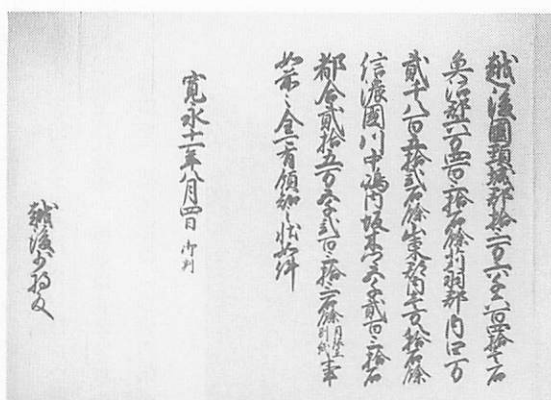 越後國頸城郡拾二万六千六百四拾七石
魚沼郡六万四百三拾石餘刈羽郡内四万
貳千八百五拾貳石餘山東郡内千百八拾石餘
信濃國川中嶋内坂木 五千貳百三拾石
都合貳拾五万 千貳百三拾二石餘目録在別紙事
如前々全可有領知之状如件
寛永十一年八月四日 御判
越後少将殿